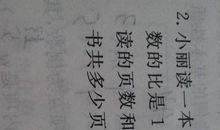 2. 小丽读一本
数的比是1
读的页数和
书共多少页